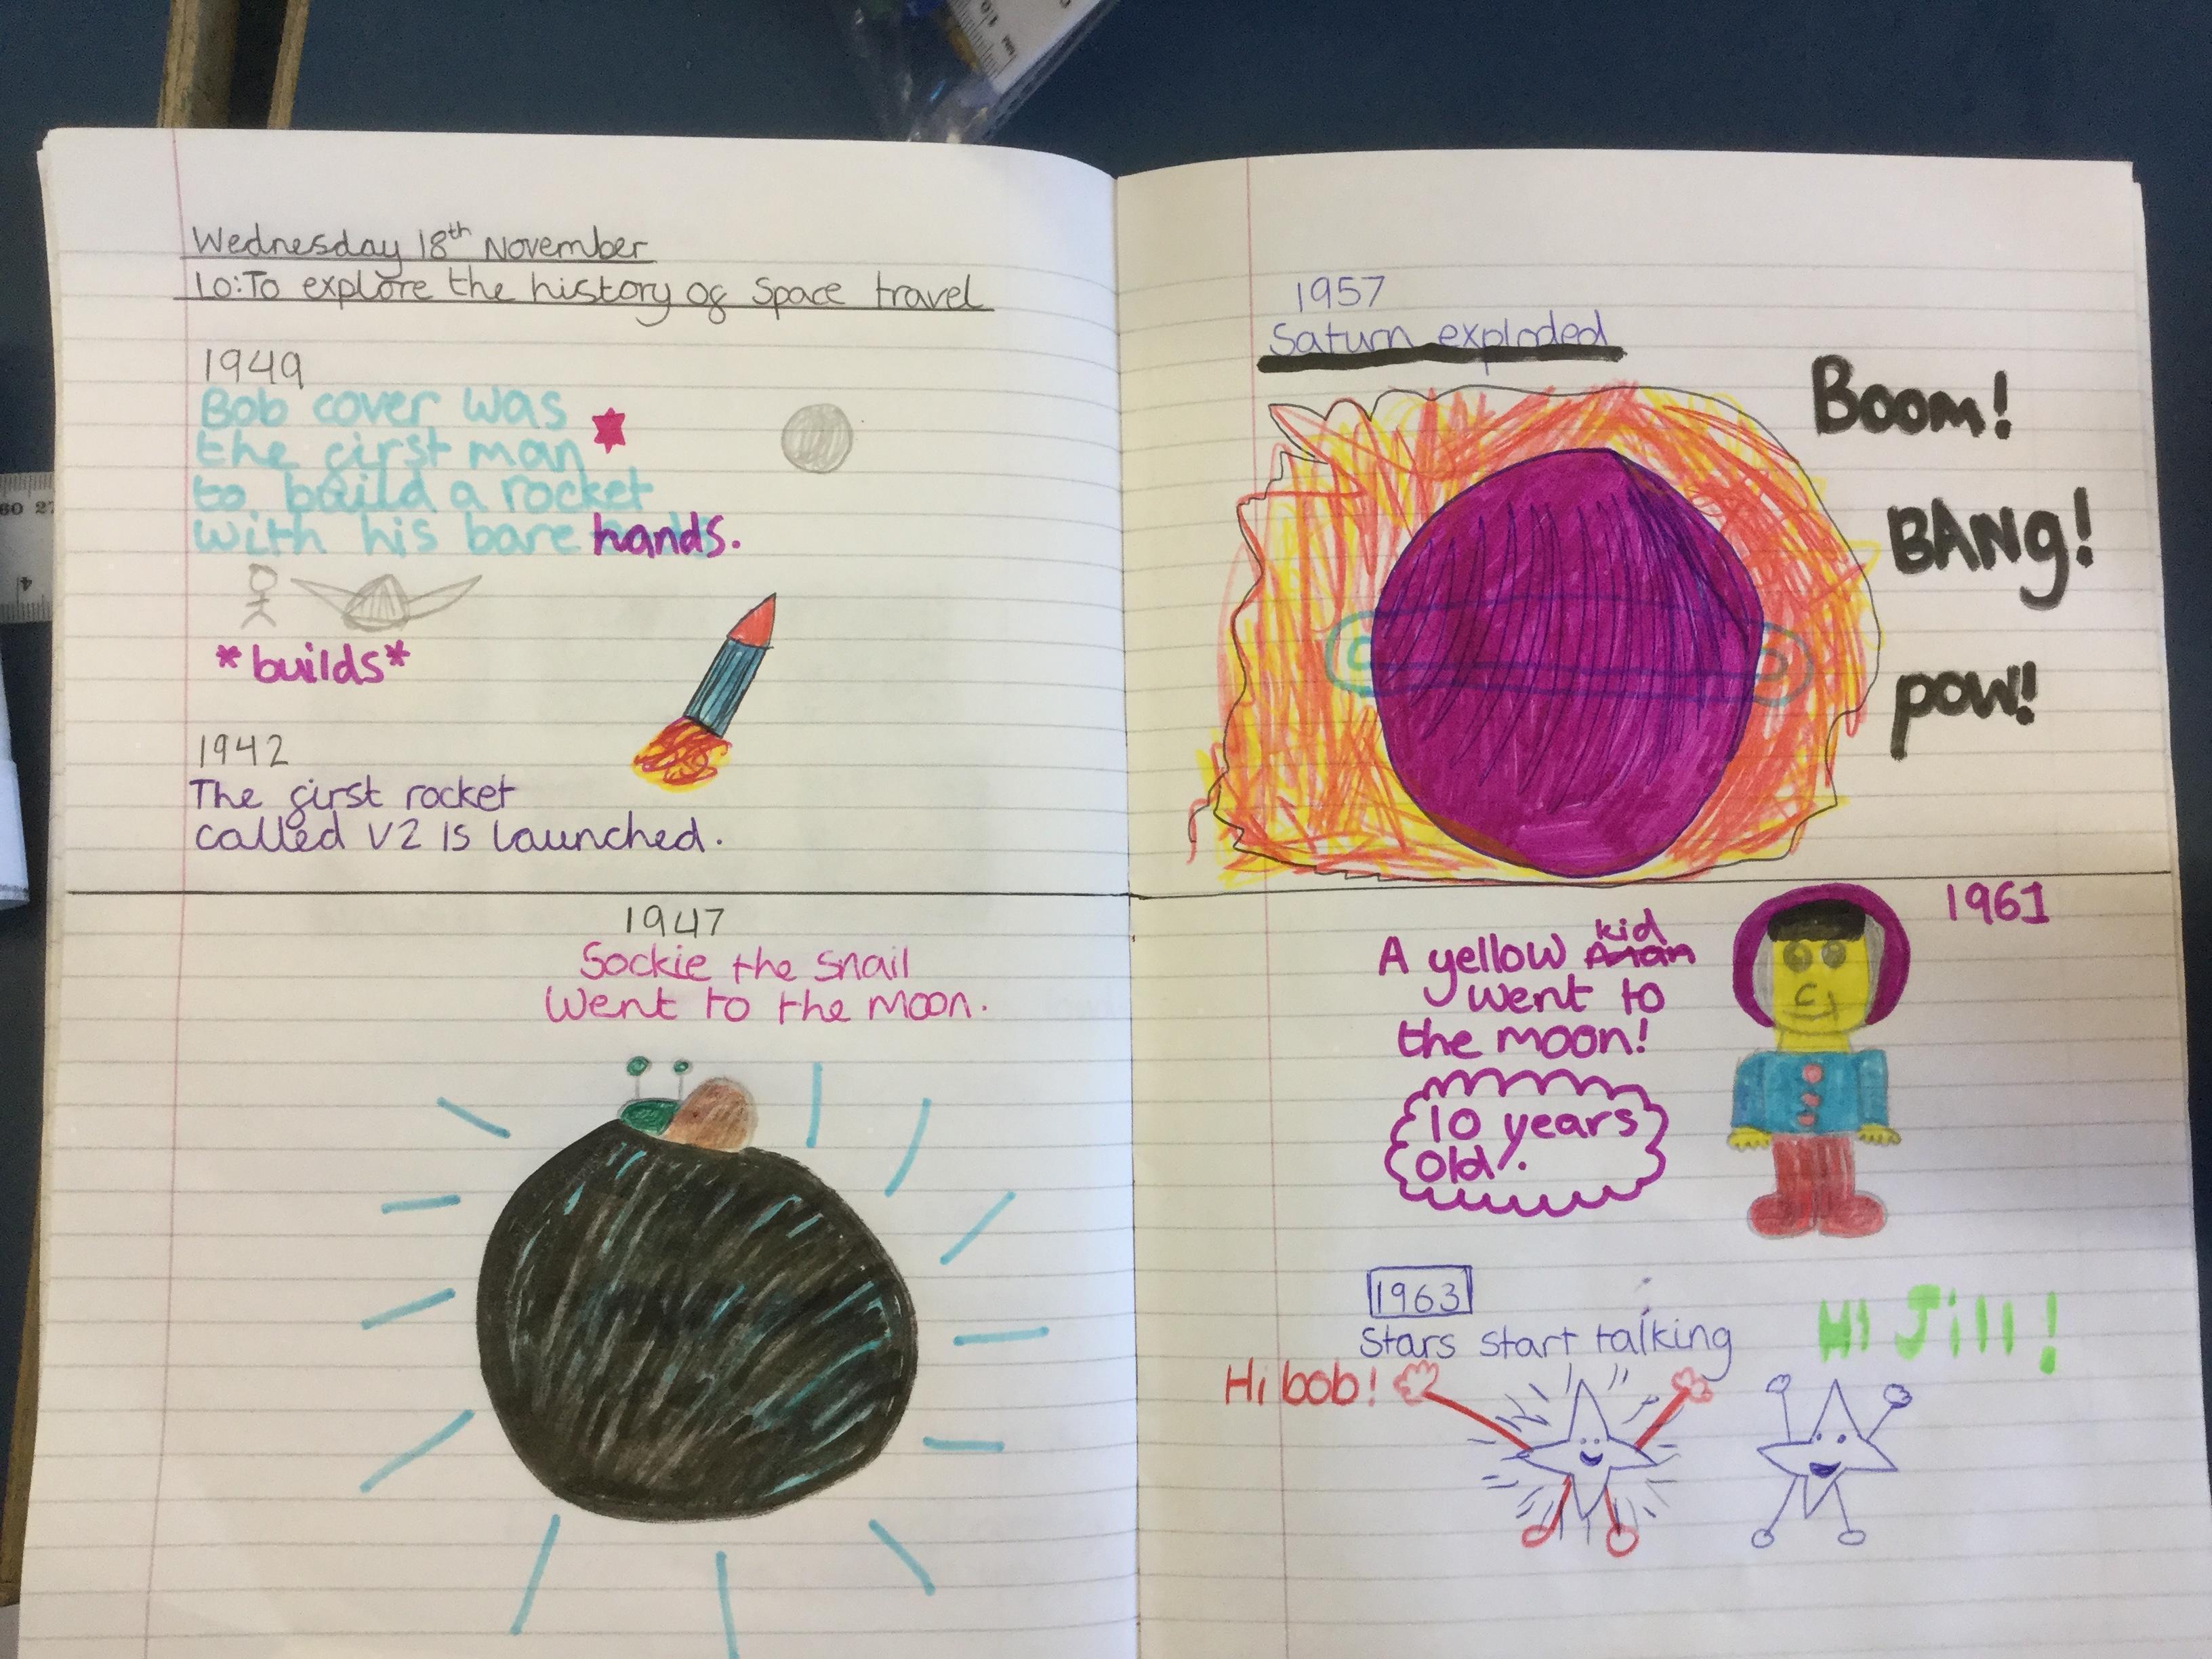 Wednesday 18th November
LO: To explore the history of Space travel
1949
Bob cover was
the first man
to build a rocket
with his bare hands.
*builds*
1942
The first rocket
called V2 is launched.
1947
Sockie the snail
Went to the moon.
1957
Saturn exploded
Boom!
BANg!
pow!
1961
A yellow kid
went to
the moon!
10 years
old.
1963
Stars start talking
Hi Jill!
Hi bob!